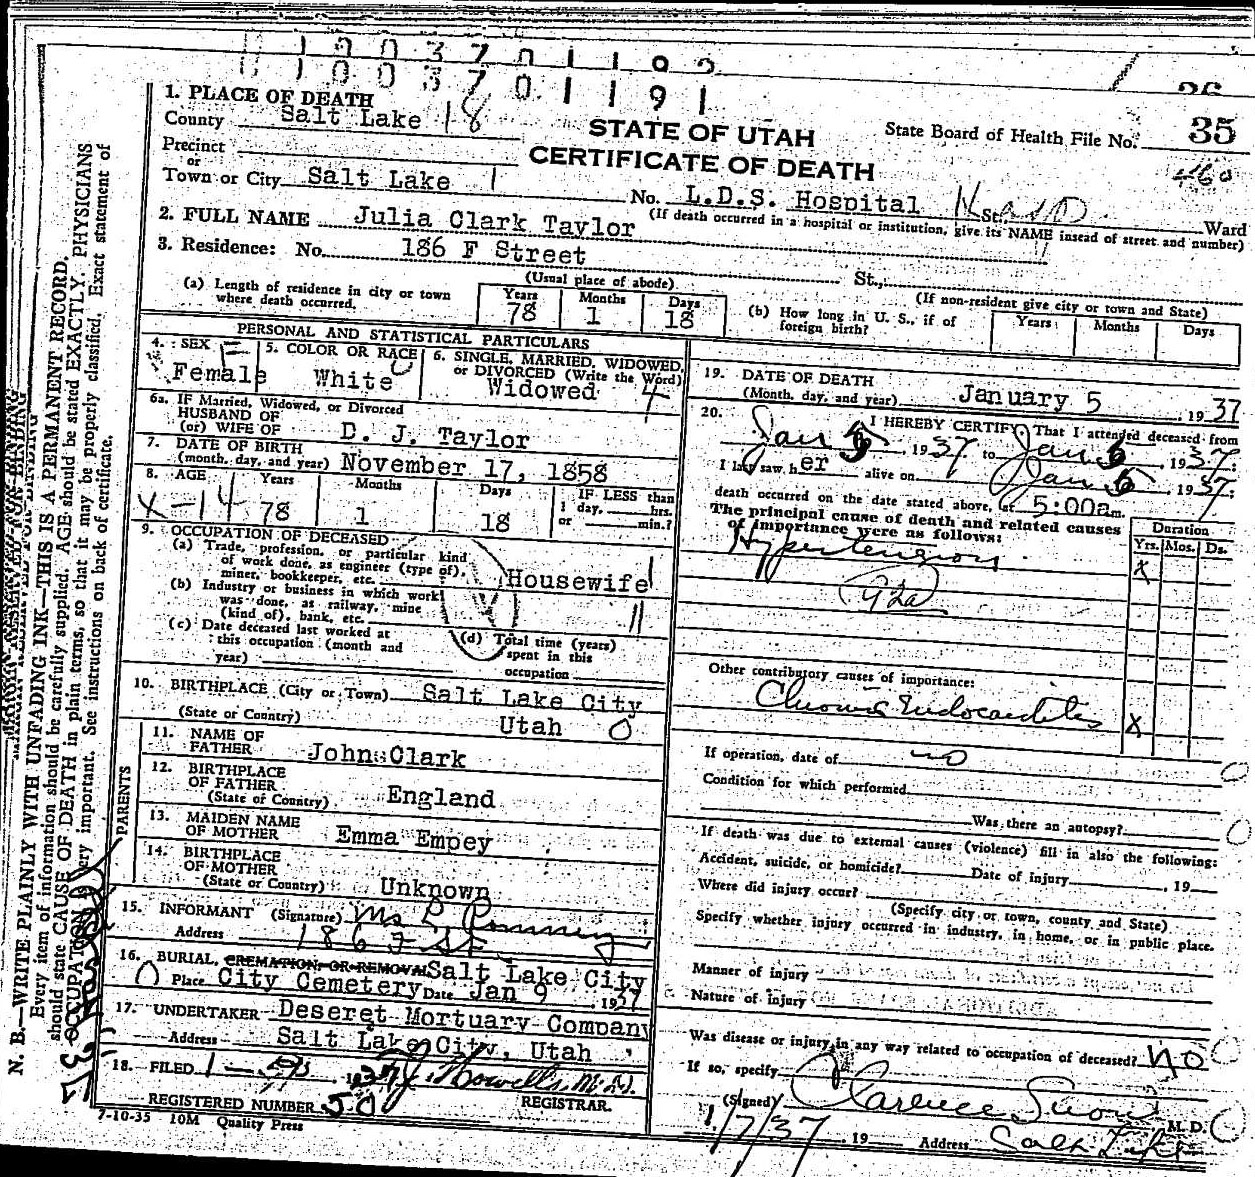 1 0 0 3 7 0 1 1 9 2
1 0 0 3 7 0 1 1 9 1
36
1. PLACE OF DEATH
County Salt Lake 18
STATE OF UTAH
CERTIFICATE OF DEATH
State Board of Health File No. 35
460
Precinct
or
Town or City Salt Lake 1
No. L.D.S. Hospital St. Ward
(If death occurred in a hospital or institution, give its NAME insead of street and number)
2. FULL NAME Julia Clark Taylor
3. Residence: No. 186 F Street St.,
(Usual place of abode)
(If non-resident give city or town and State)
(a) Length of residence in city or town
where death occurred.
Years Months Days
78 1 18
(b) How long in U. S., if of
foreign birth?
Years Months Days
PERSONAL AND STATISTICAL PARTICULARS
4. SEX F
Female
5. COLOR OR RACE
White
6. SINGLE, MARRIED, WIDOWED,
or DIVORCED (Write the Word)
Widowed 4
6a. IF Married, Widowed, or Divorced
HUSBAND OF
(or) WIFE OF D. J. Taylor
7. DATE OF BIRTH
(month, day, and year) November 17, 1858
8. AGE Years Months Days
IF LESS than
1 day, hrs.
or min.?
X-14 78 1 18
9. OCCUPATION OF DECEASED
(a) Trade, profession, or particular kind
of work done, as engineer (type of),
miner, bookkeeper, etc. Housewife
(b) Industry or business in which work
was done, as railway, mine
(kind of), bank, etc. 11
(c) Date deceased last worked at
this occupation (month and
year)
(d) Total time (years)
spent in this
occupation
10. BIRTHPLACE (City or Town) Salt Lake City
(State or Country) Utah 0
PARENTS
11. NAME OF
FATHER John Clark
12. BIRTHPLACE
OF FATHER
(State or Country) England
13. MAIDEN NAME
OF MOTHER Emma Empey
14. BIRTHPLACE
OF MOTHER
(State or Country) Unknown
15. INFORMANT (Signature)
Address 186 F St
16. BURIAL, CREMATION, OR REMOVAL Salt Lake City
Place City Cemetery Date Jan 9 1937
17. UNDERTAKER Deseret Mortuary Company
Address Salt Lake City, Utah
18. FILED 1- 37 Howells, M.D.
REGISTERED NUMBER 50 REGISTRAR.
7-10-35 10M Quality Press
19. DATE OF DEATH
(Month, day, and year) January 5 1937
20. I HEREBY CERTIFY, That I attended deceased from
Jan 1937 to Jan 5, 1937;
I last saw her alive on Jan 5, 1937;
death occurred on the date stated above, at 5:00am.
The principal cause of death and related causes
of importance were as follows:
Duration
Yrs. Mos. Ds.
Hypertension X
92a
Other contributory causes of importance:
Chronic Endocarditis X
If operation, date of no
Condition for which performed
Was there an autopsy?
If death was due to external causes (violence) fill in also the following:
Accident, suicide, or homicide? Date of injury , 19
Where did injury occur?
(Specify city or town, county and State)
Specify whether injury occurred in industry, in home, or in public place.
Manner of injury
Nature of injury
Was disease or injury in any way related to occupation of deceased? NO
If so, specify
(Signed) Clarence Snow M. D.
1/7/37 , 19 Address Salt Lake
N. B.—WRITE PLAINLY WITH UNFADING INK—THIS IS A PERMANENT RECORD.
Every item of information should be carefully supplied. AGE should be stated EXACTLY. PHYSICIANS
should state CAUSE OF DEATH in plain terms, so that it may be properly classified. Exact statement of
OCCUPATION very important. See instructions on back of certificate.